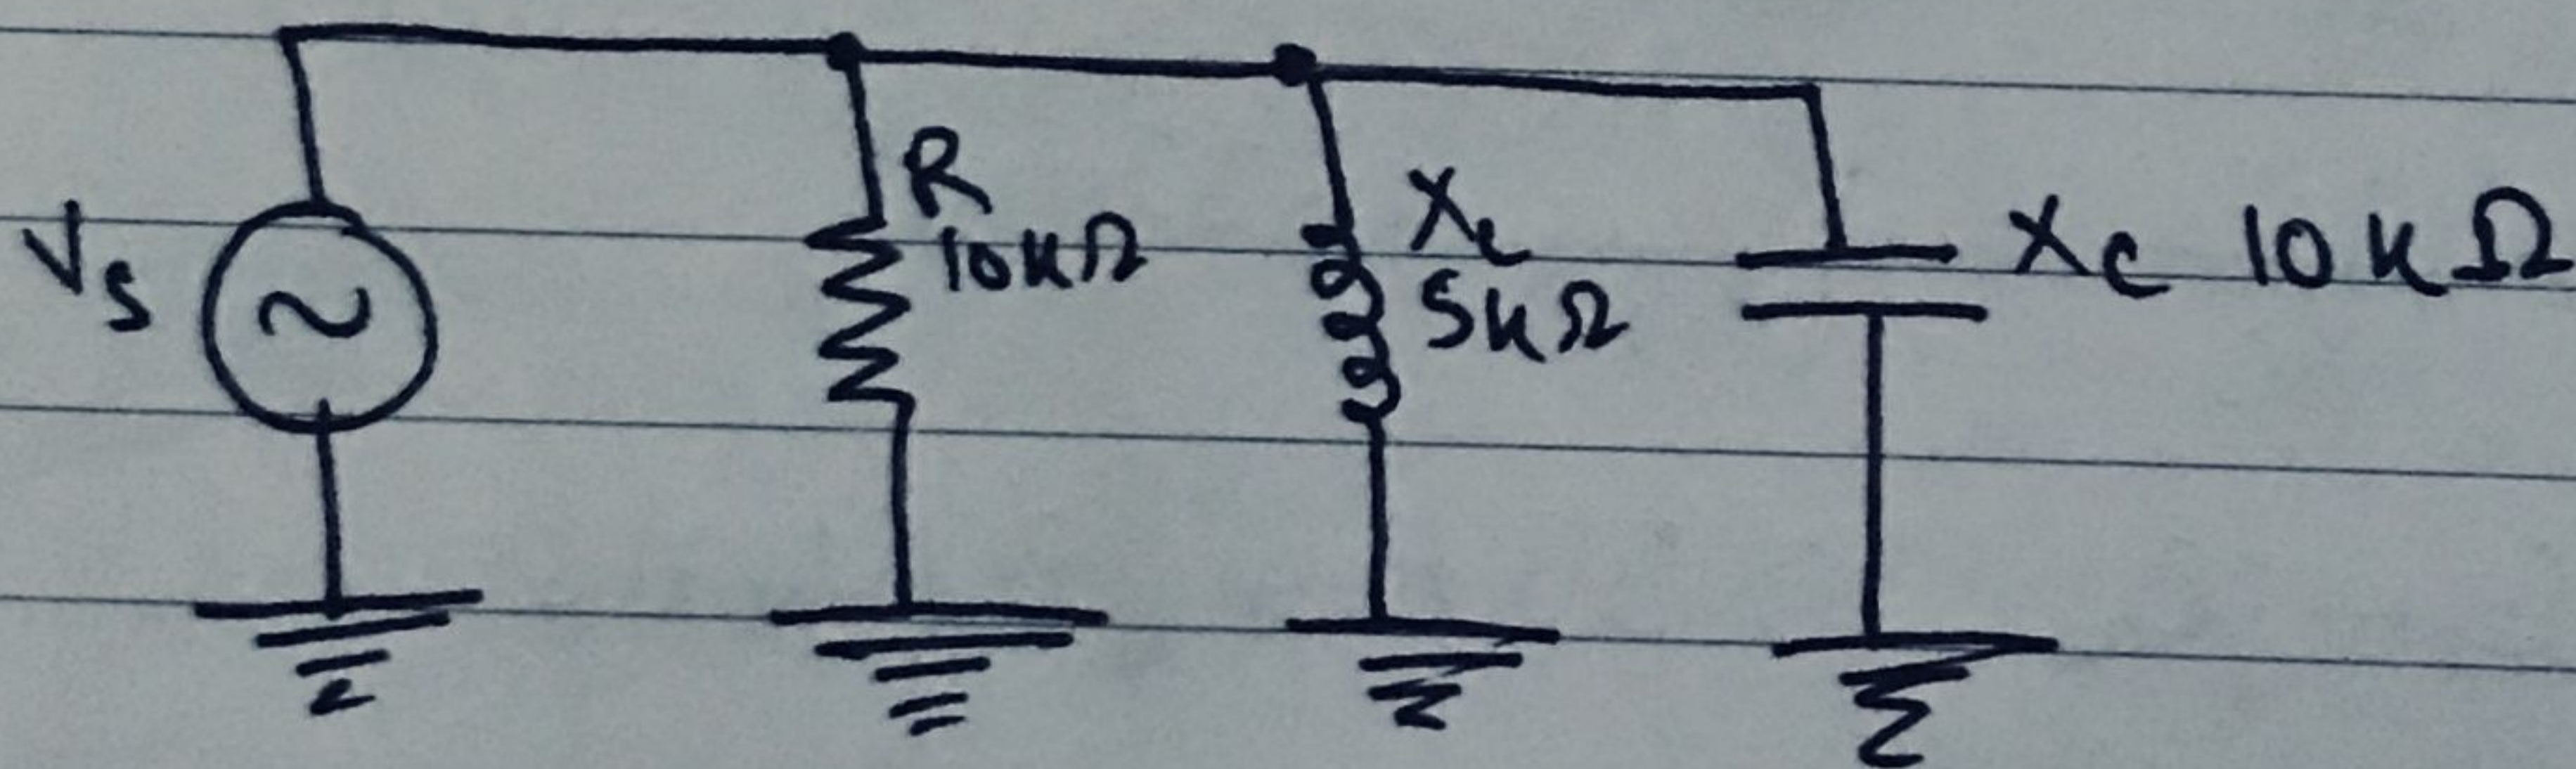 V_S
R
10kΩ
X_L
5kΩ
X_C 10kΩ